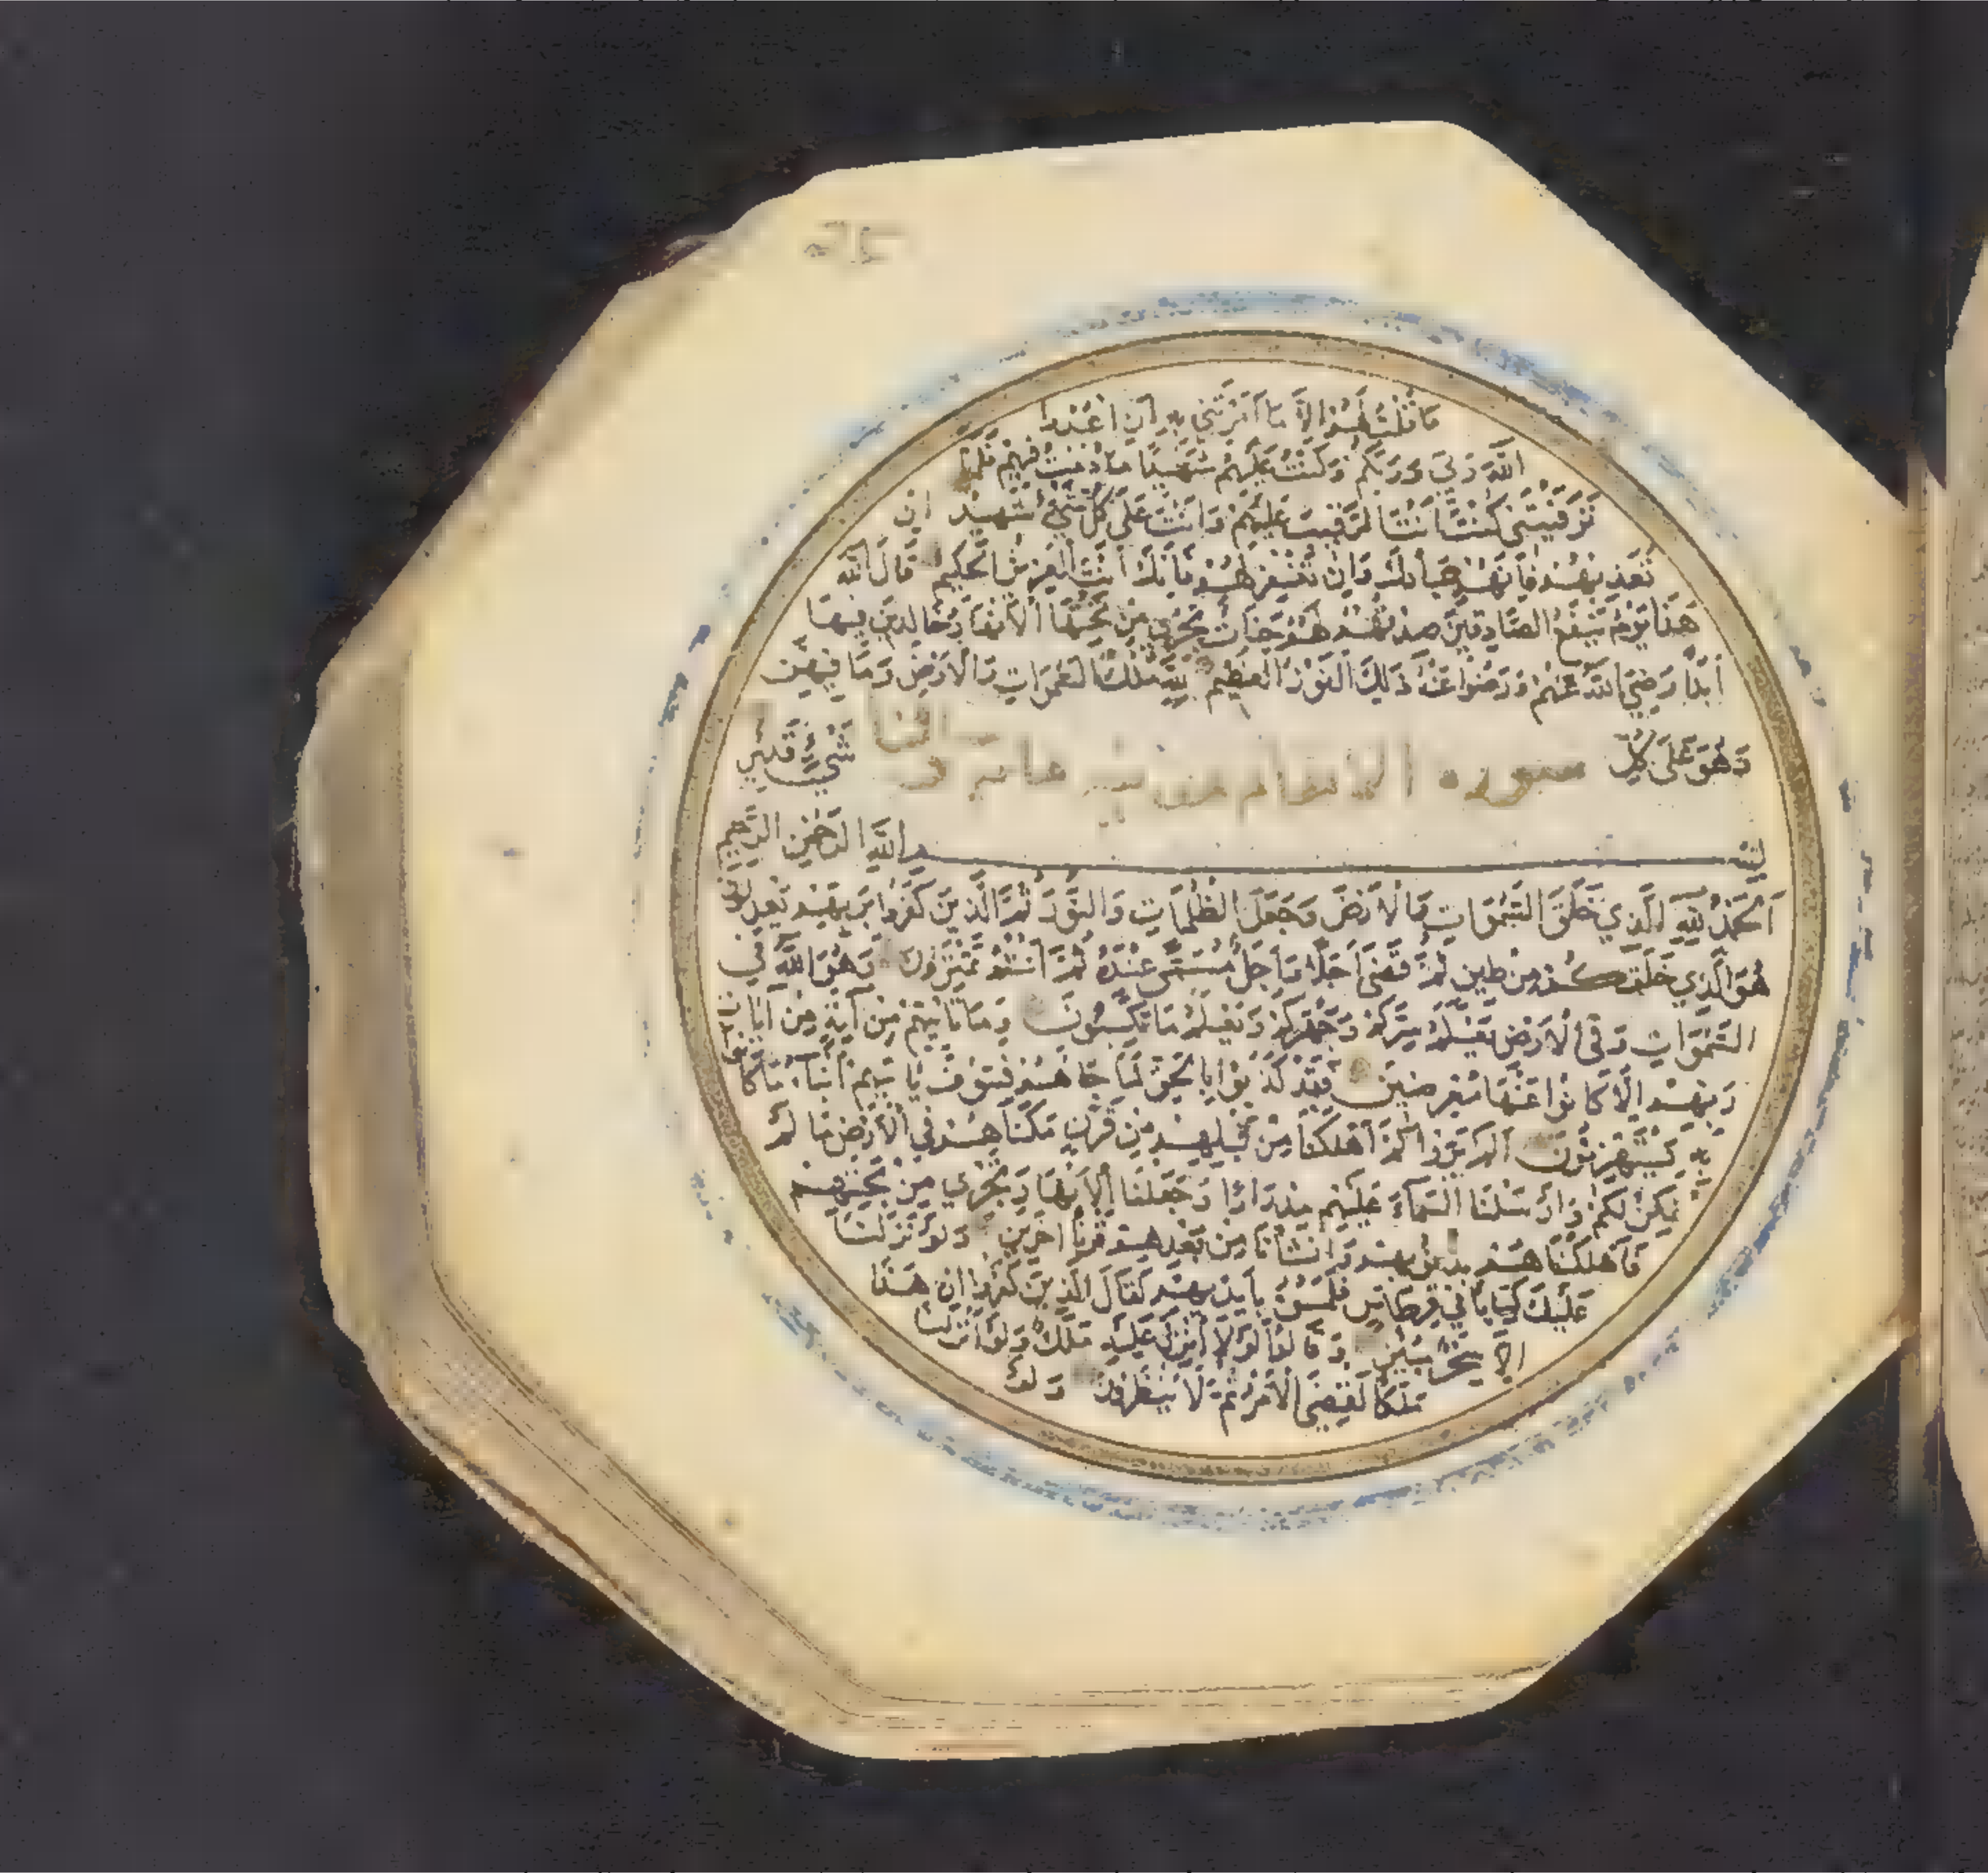 مَا قُلْتُ لَهُمْ اِلَّا مَا اَمَرْتَنِي بِهِ اَنِ اعْبُدُوا
اللّٰهَ رَبِّي وَرَبَّكُمْ وَكُنْتُ عَلَيْهِمْ شَهِيدًا مَا دُمْتُ فِيهِمْ فَلَمَّا
تَوَفَّيْتَنِي كُنْتَ اَنْتَ الرَّقِيبَ عَلَيْهِمْ وَاَنْتَ عَلَى كُلِّ شَيْءٍ شَهِيدٌ اِنْ
تُعَذِّبْهُمْ فَاِنَّهُمْ عِبَادُكَ وَاِنْ تَغْفِرْ لَهُمْ فَاِنَّكَ اَنْتَ الْعَزِيزُ الْحَكِيمُ قَالَ اللّٰهُ
هَذَا يَوْمُ يَنْفَعُ الصَّادِقِينَ صِدْقُهُمْ لَهُمْ جَنَّاتٌ تَجْرِي مِنْ تَحْتِهَا الْاَنْهَارُ خَالِدِينَ فِيهَا
اَبَدًا رَضِيَ اللّٰهُ عَنْهُمْ وَرَضُوا عَنْهُ ذَلِكَ الْفَوْزُ الْعَظِيمُ لِلّٰهِ مُلْكُ السَّمٰوَاتِ وَالْاَرْضِ وَمَا فِيهِنَّ
وَهُوَ عَلَى كُلِّ شَيْءٍ قَدِيرٌ
سورة الانعام
بِسْمِ اللّٰهِ الرَّحْمٰنِ الرَّحِيمِ
اَلْحَمْدُ لِلّٰهِ الَّذِي خَلَقَ السَّمٰوَاتِ وَالْاَرْضَ وَجَعَلَ الظُّلُمَاتِ وَالنُّورَ ثُمَّ الَّذِينَ كَفَرُوا بِرَبِّهِمْ يَعْدِلُونَ
هُوَ الَّذِي خَلَقَكُمْ مِنْ طِينٍ ثُمَّ قَضَى اَجَلًا وَاَجَلٌ مُسَمًّى عِنْدَهُ ثُمَّ اَنْتُمْ تَمْتَرُونَ وَهُوَ اللّٰهُ فِي
السَّمٰوَاتِ وَفِي الْاَرْضِ يَعْلَمُ سِرَّكُمْ وَجَهْرَكُمْ وَيَعْلَمُ مَا تَكْسِبُونَ وَمَا تَاْتِيهِمْ مِنْ آيَةٍ مِنْ آيَاتِ
رَبِّهِمْ اِلَّا كَانُوا عَنْهَا مُعْرِضِينَ فَقَدْ كَذَّبُوا بِالْحَقِّ لَمَّا جَاءَهُمْ فَسَوْفَ يَاْتِيهِمْ اَنْبَاءُ مَا كَانُوا
بِهِ يَسْتَهْزِئُونَ اَلَمْ يَرَوْا كَمْ اَهْلَكْنَا مِنْ قَبْلِهِمْ مِنْ قَرْنٍ مَكَّنَّاهُمْ فِي الْاَرْضِ مَا لَمْ
نُمَكِّنْ لَكُمْ وَاَرْسَلْنَا السَّمَاءَ عَلَيْهِمْ مِدْرَارًا وَجَعَلْنَا الْاَنْهَارَ تَجْرِي مِنْ تَحْتِهِمْ
فَاَهْلَكْنَاهُمْ بِذُنُوبِهِمْ وَاَنْشَاْنَا مِنْ بَعْدِهِمْ قَرْنًا آخَرِينَ وَلَوْ نَزَّلْنَا
عَلَيْكَ كِتَابًا فِي قِرْطَاسٍ فَلَمَسُوهُ بِاَيْدِيهِمْ لَقَالَ الَّذِينَ كَفَرُوا اِنْ هَذَا
اِلَّا سِحْرٌ مُبِينٌ وَقَالُوا لَوْلَا اُنْزِلَ عَلَيْهِ مَلَكٌ وَلَوْ اَنْزَلْنَا
مَلَكًا لَقُضِيَ الْاَمْرُ ثُمَّ لَا يُنْظَرُونَ وَلَوْ